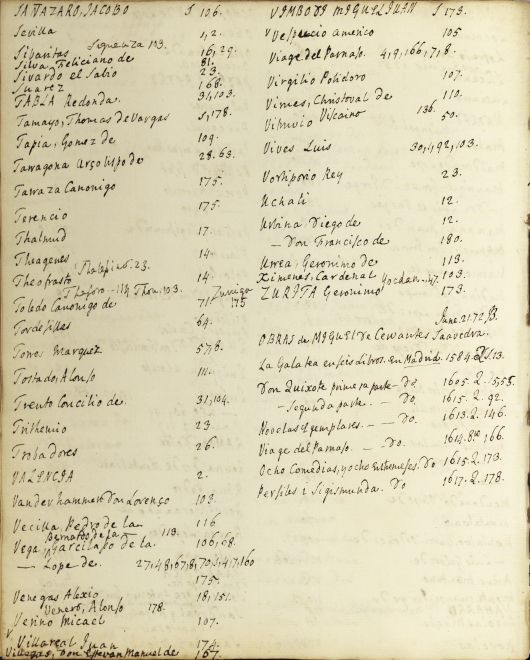 SANAZARO, JACOBO § 106.
Sevilla 1, 2.
Siguenza 103.
Sibaritas 16, 29.
Silva Feliciano de 81.
Sivardo el Sabio 23.
Suarez 168.
TABLA Redonda. 31, 103.
Tamayo, Thomas de Vargas 5, 178.
Tapia, Gomez de 109.
Tarragona Arçobispo de 28. 63.
Tarraza Canonigo 175.
Terencio 175.
Thalmud 17.
Theagenes 14.
Theofrasto 14.
Toledo Canonigo de 71
Zuniga 175
Tordesillas 64.
Torres Marquez 57, 8.
Tostado, Alonso 111.
Trento Concilio de. 31, 104.
Trithemio 23.
Trobadores 26.
VALENCIA 2.
Vander hammen Don Lorenço 103.
Vecilla Pedro de la 116
Bernardo de la 113.
Vega, Garcilaso de la. 106, 68.
— Lope de. 27, 48, 67, 8, 70, 1, 4, 7, 160
175.
Venegas Alexio 18, 151.
Venero, Alonso 178.
Verino Micael 107.
Villareal Juan 174.
Villegas, Don Estevan Manuel de 167.
VIMBODI MIGUEL JUAN § 173.
Vespucio americo 105
Viage del Parnaso. 4, 9, 166, 7, 8.
Virgilio Polidoro 107.
Virues, Christoval de 110.
Vitruvio Viscaino 136. 50.
Vives Luis 30, 4, 92, 103.
Vortiporio Rey 23.
Uchali 12.
Urbina Diego de 12.
— Don Francisco de 180.
Urrea, Geronimo de 113.
Ximenes, Cardenal 103.
ZURITA Geronimo 173.
June. 21. 72.
OBRAS de MIGUEL De Cervantes Saavedra.
La Galatea en seis libros. en Madrid. 1584. § 13.
Don Quixote primera parte - Do. 1605. 2. 15, 53.
— Segunda parte. — Do. 1615. 2. 92.
Novelas Exemplares. — — Do. 1613. 2. 146.
Viage del Parnaso. — Do. 1614. 8vo 166.
Ocho Comedias, y ocho Entremeses. Do 1615. 2. 173.
Persiles i Sigismunda. Do 1617. 2. 178.